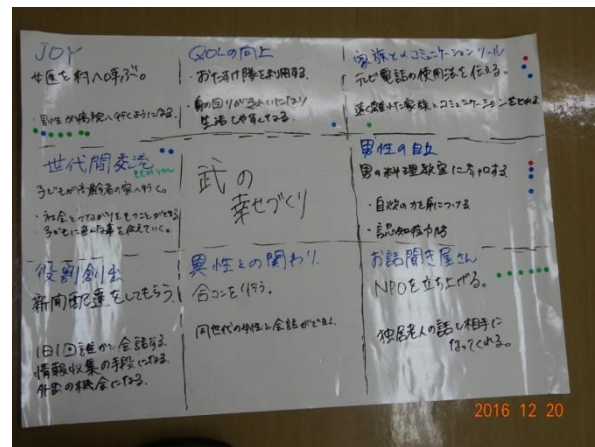 JOY
女医を村へ呼ぶ。
・男性が病院へ行くようになる。
QOLの向上
・おたすけ隊を利用する。
・身の回りがきれいになり
生活しやすくなる。
家族とのコミュニケーションツール
テレビ電話の使用法を伝える。
遠く離れた家族とコミュニケーションをとれる
世代間交流
子どもが高齢者の家へ行く。
・社会とつながりをもつことができる
武の
幸せづくり
男性の自立
男の料理教室に参加する
・自炊の力を身につける
・認知症予防
役割創出
新聞配達をしてもらう
1日1回誰かと会話する
情報収集の手段になる
外出の機会になる
異性との関わり
合コンを行う。
同世代の女性と会話ができる
お話聞き屋さん
NPOを立ち上げる。
独居老人の話し相手に
なってくれる。
2016 12 20